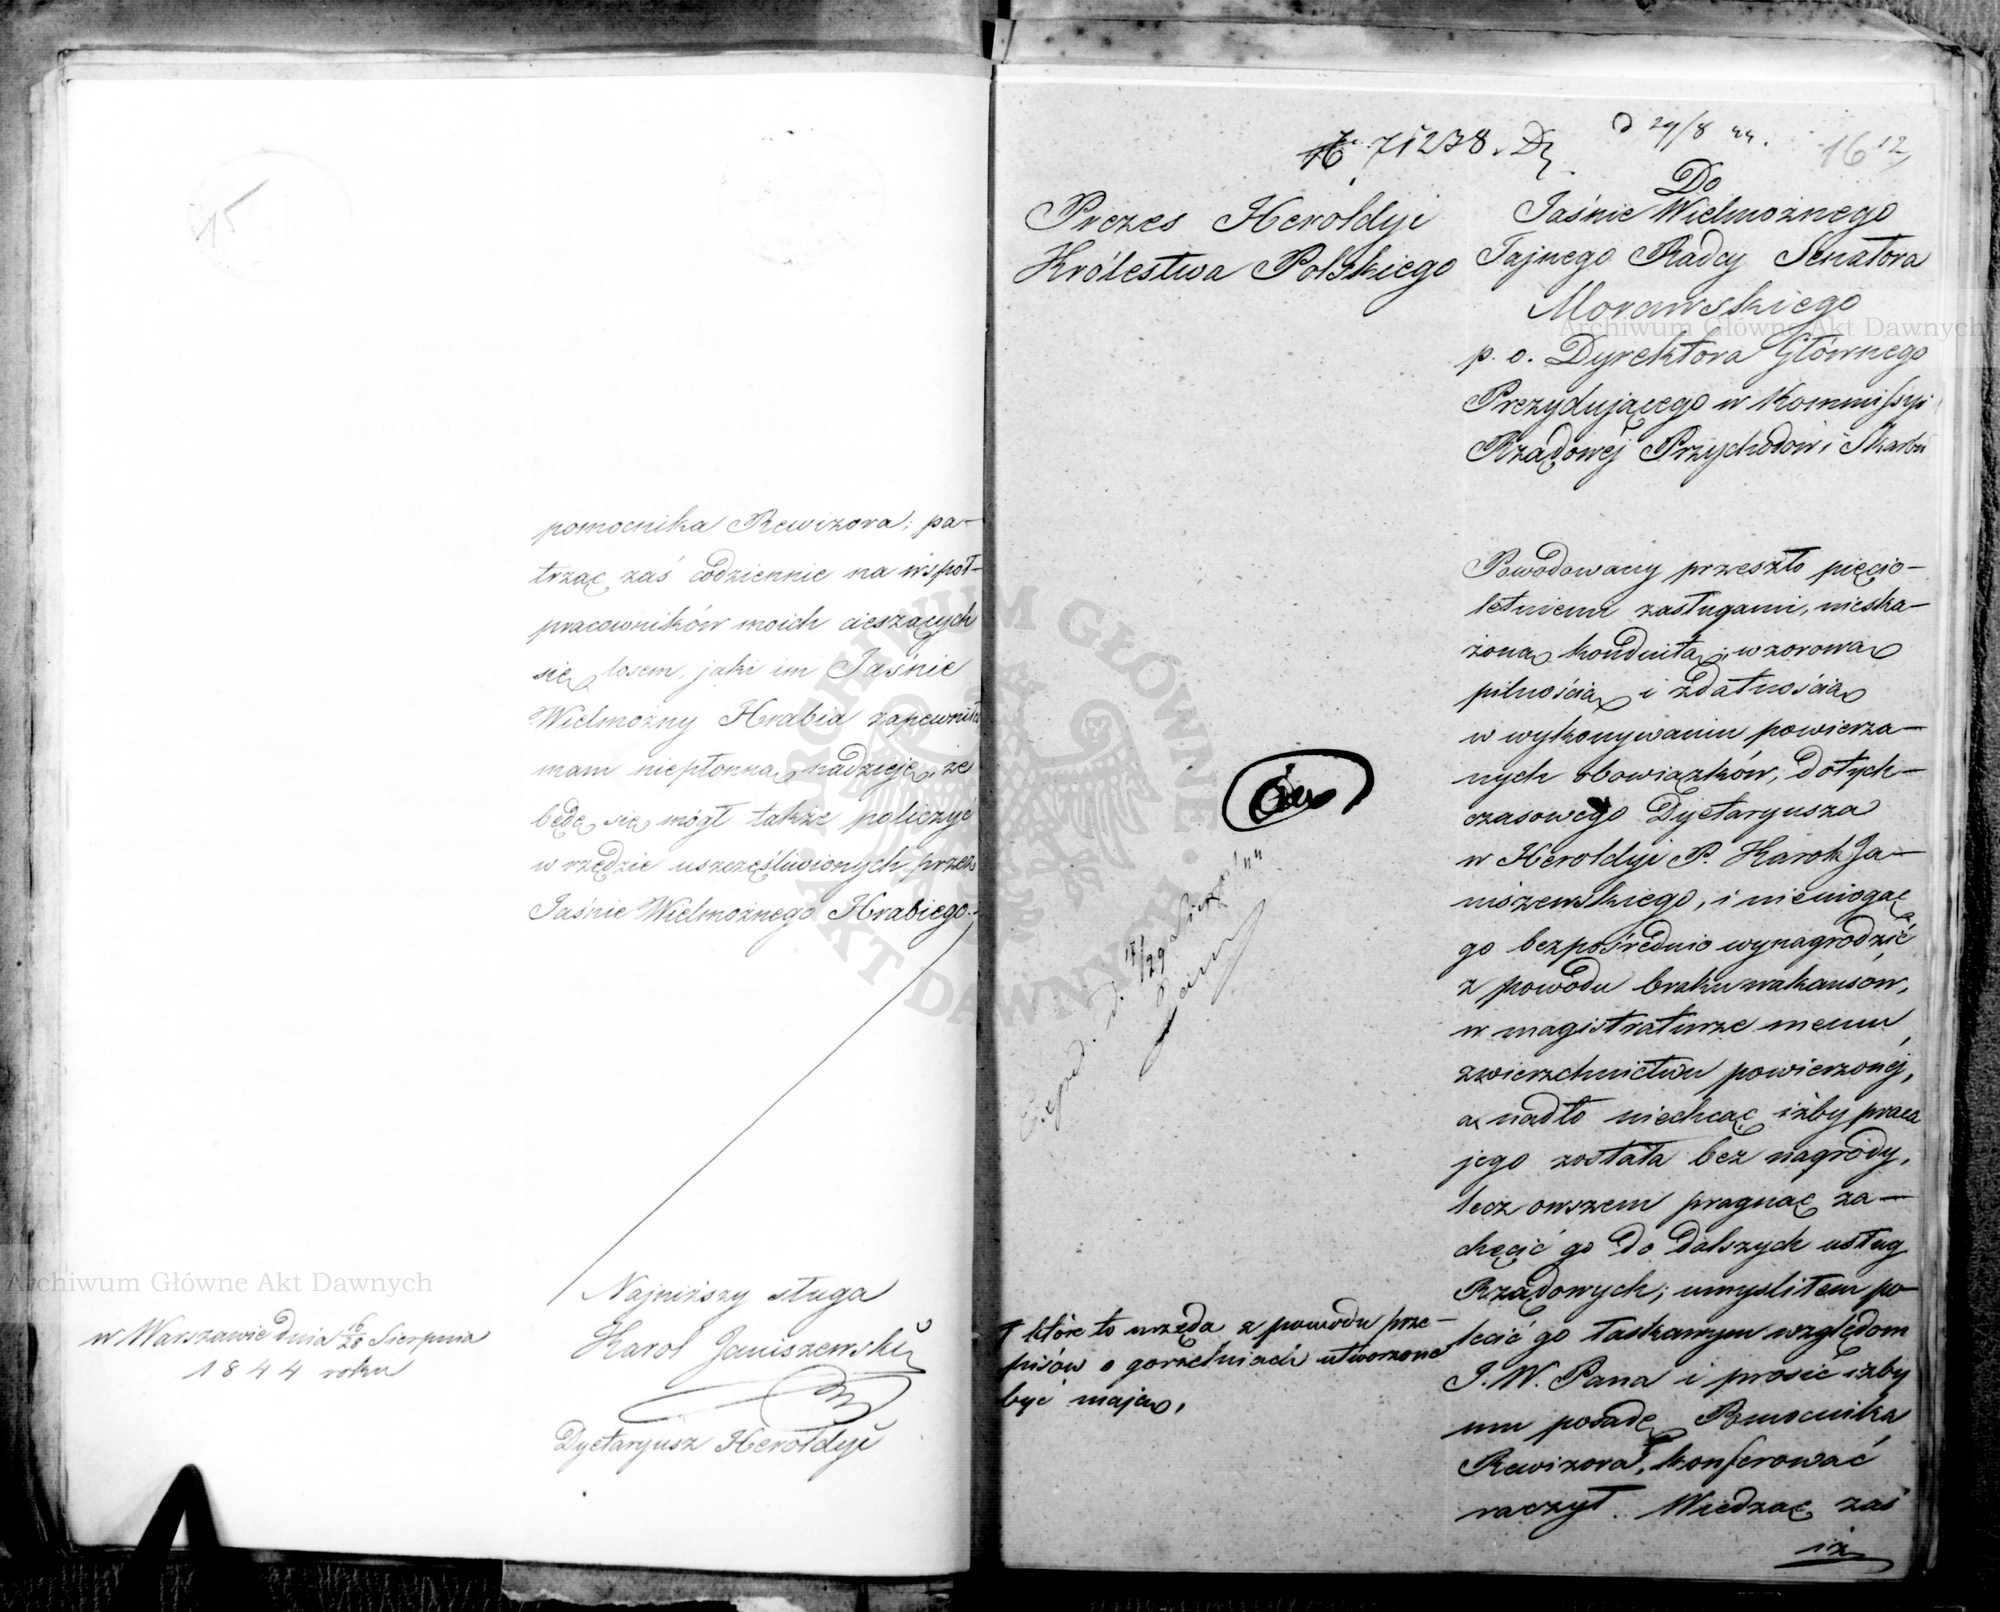 15
pomocnika Rewizora; pa—
trząc zaś codziennie na współ—
pracowników moich cieszących
się losem, jaki im Jaśnie
Wielmożny Hrabia zapewnił
mam niepłonną nadzieję, że
będę się mógł także policzyć
w rzędzie uszczęśliwionych przez
Jaśnie Wielmożnego Hrabiego.
Najniższy sługa
Karol Janiszewski
Dyetaryusz Heroldyi
w Warszawie dnia 16/28 Sierpnia
1844 roku
Archiwum Główne Akt Dawnych
16 12
№ 71238.
29/8 44.
Prezes Heroldyi
Królestwa Polskiego
Do
Jaśnie Wielmożnego
Tajnego Radcy Senatora
Morawskiego
p. o. Dyrektora Głównego
Prezydującego w Kommissyi
Rządowej Przychodów i Skarbu
Archiwum Główne Akt Dawnych
Powodowany przeszło pięcio—
letniemi zasługami, nieska—
żoną konduitą, wzorową
pilnością i zdatnością
w wykonywaniu powierza—
nych obowiązków, dotych—
czasowego Dyetaryusza
w Heroldyi P. Karola Ja—
niszewskiego, i niemogąc
go bezpośrednio wynagrodzić
z powodu braku wakansów,
w magistraturze memu
zwierzchnictwu powierzonej,
a nadto niechcąc iżby praca
jego została bez nagrody,
lecz owszem pragnąc za—
chęcić go do dalszych usług
Rządowych; umyśliłem po—
lecić go łaskawym względom
J. W. Pana i prosić iżby
mu posadę Pomocnika
Rewizora, konferować
raczył. Wiedząc zaś
iż
Exped. d. 17/29 Sierp. 44
które to urzęda z powodu prze—
pisów o gorzelniach utworzone
być mają,
ARCHIWUM GŁÓWNE AKT DAWNYCH